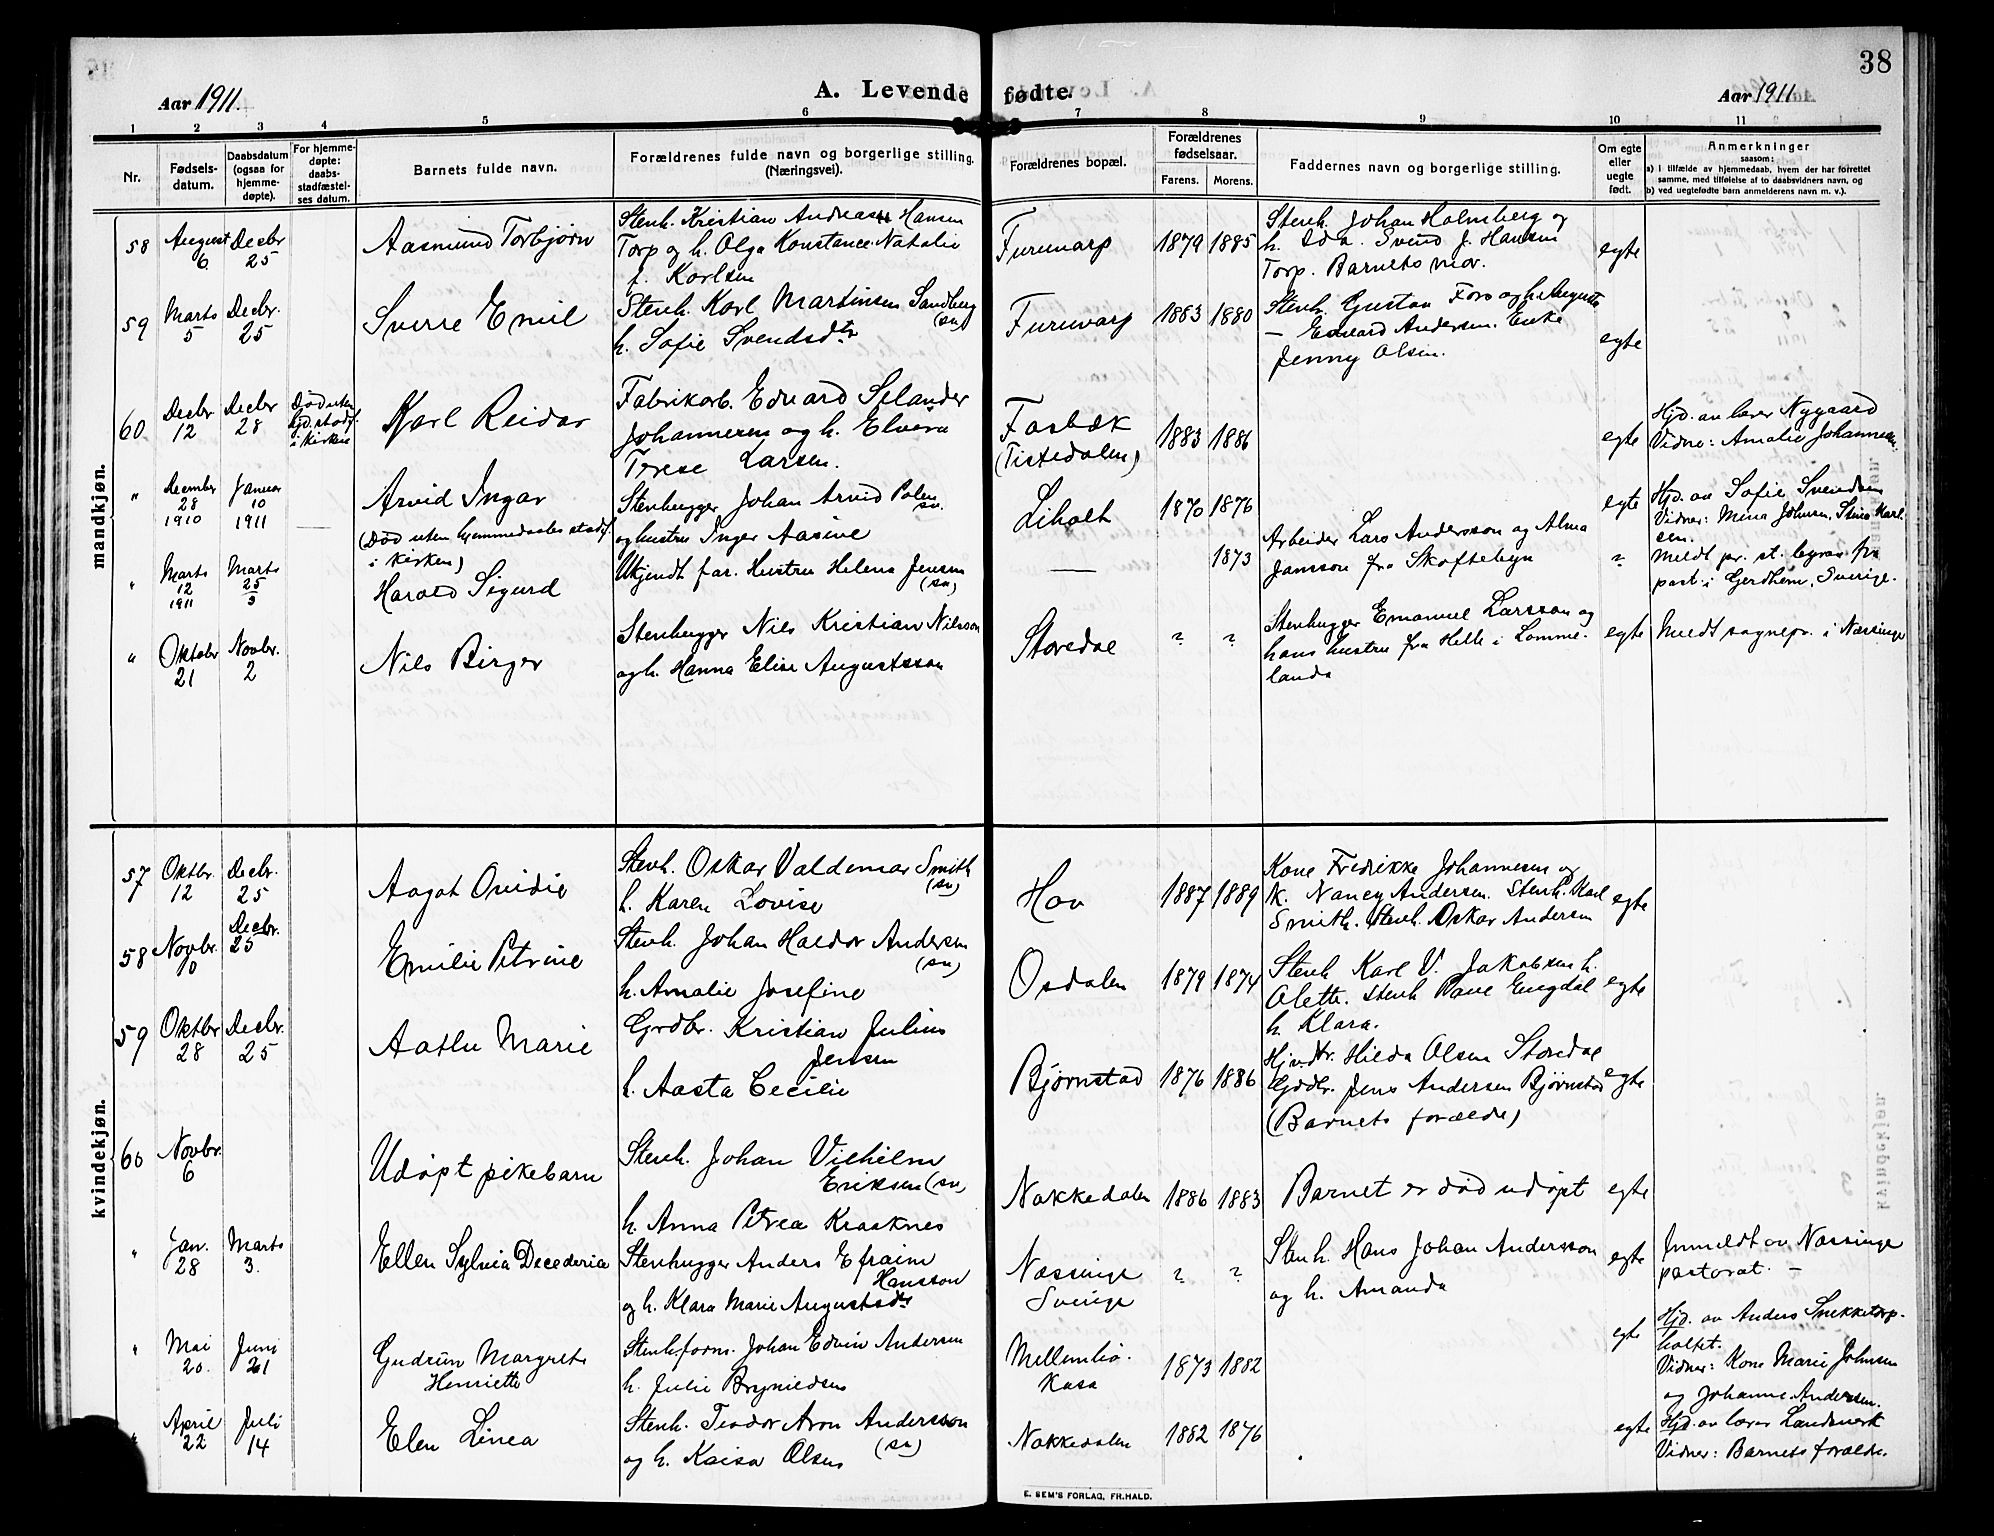 38
Aar 1911.
A. Levende fødte.
Aar 1911
1 2 3 4 5 6 7 8 9 10 11
Nr.
Fødsels-
datum.
Daabsdatum
(ogsaa for
hjemme-
døpte).
For hjemme-
døpte:
daabs-
stadfæstel-
ses datum.
Barnets fulde navn.
Forældrenes fulde navn og borgerlige stilling.
(Næringsvei).
Forældrenes bopæl.
Forældrenes
fødselsaar.
Farens. Morens.
Faddernes navn og borgerlige stilling.
Om egte
eller
uegte
født.
Anmerkninger
saasom:
a) I tilfælde av hjemmedaab, hvem der har forrettet
samme, med tilføielse af to daabsvidners navn, og
b) ved uegtefødte barn anmelderens navn m. v.).
mandkjøn.
58
August
6
Decbr
25
Aasmund Torbjørn
Stenh. Kristian Andreas Hansen
Torp og h. Olga Konstance Natalie
f. Karlsen
Furuvarp
1879 1885
Stenh. Johan Holmberg og
h. Ida. Svend J. Hansen
Torp. Barnets mor.
egte
59
Marts
5
Decbr.
25
Sverre Emil
Stenh. Karl Martinsen Sandberg
(sv)
h. Sofie Svendsdtr
Furuvarp
1883 1880
Stenh. Gustav Fors og h. Augusta
— Edvard Andersen. Enke
Jenny Olsen.
egte
60
Decbr
12
Decbr
28
Død uten
hjd. stadf.
i kirken
Karl Reidar
Fabrikarb. Edvard Selander
Johannesen og h. Elvira
Terese Larsen.
Fosbæk
(Tistedalen)
1883 1886
egte
Hjd. av lærer Nygaard
Vidne: Amalie Johannesen
"
December
28
1910
Januar
10
1911
Arvid Ingar
(Død uten hjemmedaabs stadf.
i kirken)
Stenhugger Johan Arvid Polen
sv.
og hustru Inger Aasine
Liholt
1870 1876
egte
Hjd. av Sofie Svendsen
Vidner: Mina Johnsen, Stina Karl-
sen.
"
Marts
12
1911
Marts
25
3
Harald Sigurd
Ukjendt far. Hustru Helena Jensen
(sv)
—
1873
Arbeider Lars Andersson og Alma
Jansson fra Skoftebyn
"
Meldt pr. st. byraa fra
past. i Gerdhem, Sverige.
"
Oktobr
21
Novbr.
2
Nils Birger
Stenhugger Nils Kristian Nilsson
og h. Hanna Elise Augustsson
Storedal
" "
Stenhugger Emanuel Larsson og
hans hustru fra Helle i Lomme-
landa
egte
Meldt sognepr. i Næssinge
kvindekjøn.
57
Oktbr.
12
Decbr.
25
Aagot Ovidie
Stenh. Oskar Valdemar Smith
(sv)
h. Karen Lovise
Hov
1887 1889
Kone Fredrikke Johannesen og
K. Nancy Andersen. Stenh. Karl
Smith. Stenh. Oskar Andersen
egte
58
Novbr.
Decbr.
25
Emilie Petrine
Stenh. Johan Haldor Andersen
(sv)
h. Amalie Josefine
Osdalen
1879 1874
Stenh Karl V. Jakobsen h.
Olette. Stenh Paul Engdal
h. Klara.
egte
59
Oktbr
28
Decbr.
25
Aaslu Marie
Grdbr. Kristian Julius
Jensen
h. Aasta Cecilie
Bjørnstad
1876 1886
Hjvdtr. Hilda Olsen Storedal
Grdbr. Jens Andersen Bjørnstad
(Barnets forældre)
egte
60
Novbr.
6
Udøpt pikebarn
Stenh. Johan Vilhelm
Eriksen (sv)
h. Anna Petrea Kraaknes
Nokkedalen
1886 1883
Barnet er død udøpt
egte
"
Jan.
28
Marts
3.
Ellen Sylvia Decederia
Stenhugger Anders Efraim
Hansson
og h. Klara Marie Augustsdtr
Næssinge
Sverige
" "
Stenh. Hans Johan Andersson
og h. Amanda
egte
Innmeldt av Næssinge
pastorat. —
"
Mai
20.
Juni
21
Gudrun Margrete
Henriette
Stenh.form. Johan Edvin Andersen
h. Julie Brynildsen
Mellembø-
Kasa
1873 1882
egte
Hjd. av Anders Snekketorp-
holtet.
Vidner: Kone Marie Johnsen
og Johanne Andersen.
April
22
Juli
14
Elen Linea
Stenh. Teodor Aron Andersson
(sv)
og h. Kaisa Olsen
Nokkedalen
1882 1876
egte
Hjd. av lærer Landsverk
Vidner: Barnets forældre.
E. SEM'S FORLAG, FR.HALD.